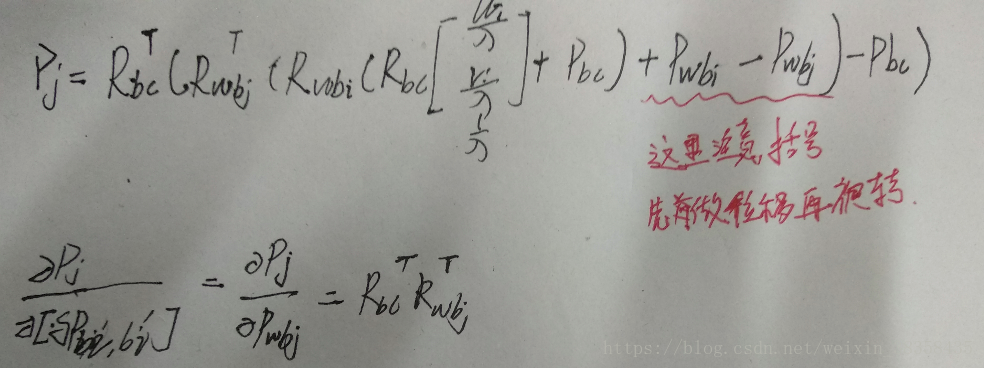 P_j = R_{bc}^T (R_{wb_j}^T (R_{wb_i} (R_{bc} [ \frac{u_i}{λ} \frac{v_i}{λ} \frac{1}{λ} ] + P_{bc}) + P_{wb_i} - P_{wb_j}) - P_{bc})
这里注意括号
先做位移再旋转.
\frac{∂P_j}{∂[δP_{b_i b_i'}]} = \frac{∂P_j}{∂P_{wb_j}} = R_{bc}^T R_{wb_j}^T
https://blog.csdn.net/weixin